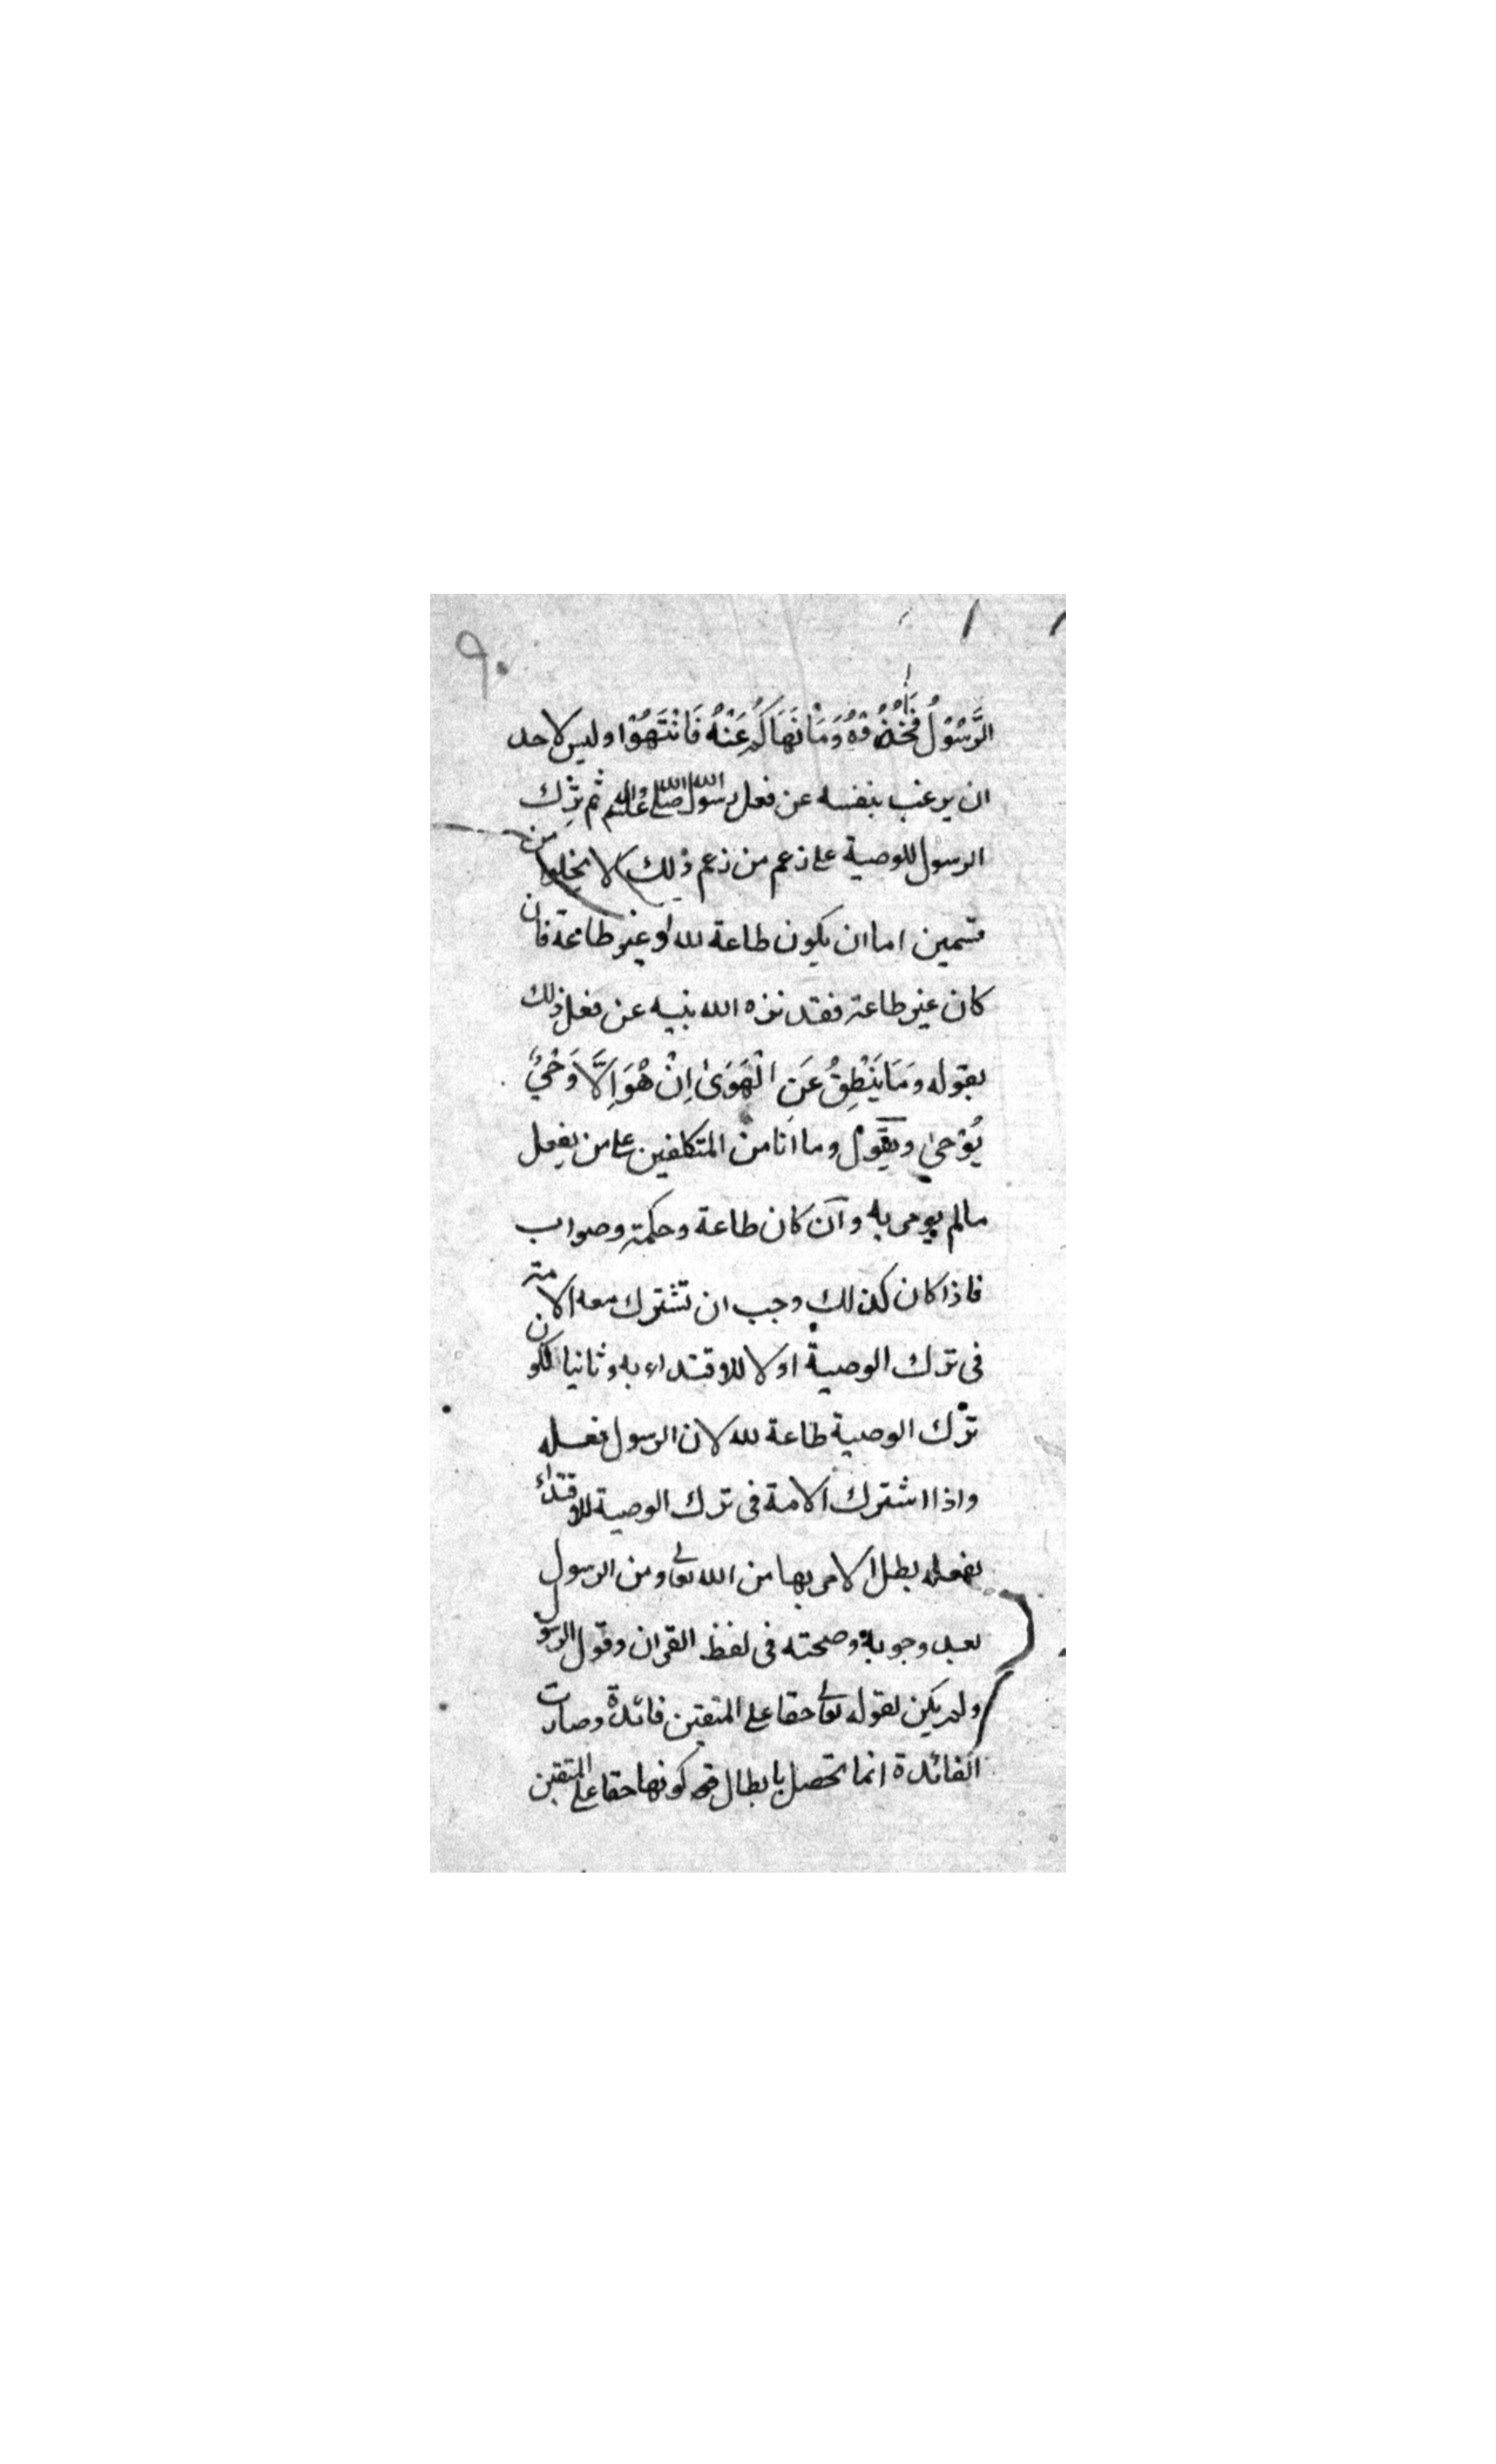 ٩٠
الرَّسُوْلُ فَخُذُوْهُ وَمَا نَهَاكُمْ عَنْهُ فَانْتَهُوْا وليس لاحد
ان يرغب بنفسه عن فعل رسول الله صلى الله عليه وآله ثم ترك
الرسول للوصية على زعم من زعم ذلك لا يخلوا من
قسمين اما ان يكون طاعة لله او غير طاعة فان
كان غير طاعة فقد نزه الله نبيه عن فعل ذلك
بقوله وَمَا يَنْطِقُ عَنِ الْهَوَىٰ اِنْ هُوَ اِلَّا وَحْيٌ
يُوْحىٰ ويقول وما انا من المتكلفين على من يفعل
مالم يومى به وان كان طاعة وحكمة وصواب
فاذا كان كذلك وجب ان تشترك معه الامة
فى ترك الوصية اولا للاقتداء به وثانيا لكون
ترك الوصية طاعة لله لان الرسول فعله
واذا اشترك الامة فى ترك الوصية للاقتداء
بفعله بطل الامر بها من الله تعالى ومن الرسول
بعد وجوبه وصحته فى لفظ القران وقول الرسول
ولم يكن لقوله تعالى حقا على المتقين فائدة وصارت
الفائدة انما تحصل بابطال كونها حقا على المتقين